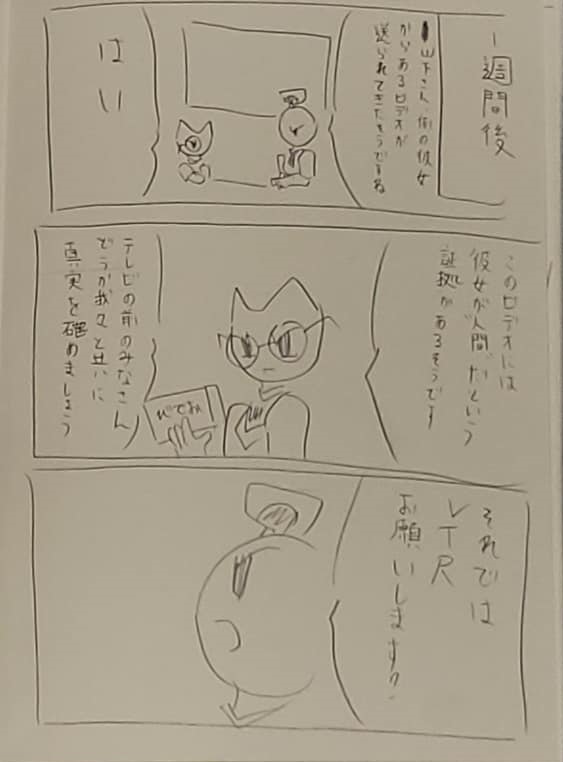 一週間後
山下さん、例の彼女
からあるビデオが
送られてきたそうですね
はい
このビデオには
彼女が"人間"だという
証拠があるそうです
びでお
テレビの前のみなさん
どうか我々と共に
真実を確めましょう
それでは
VTR
お願いします